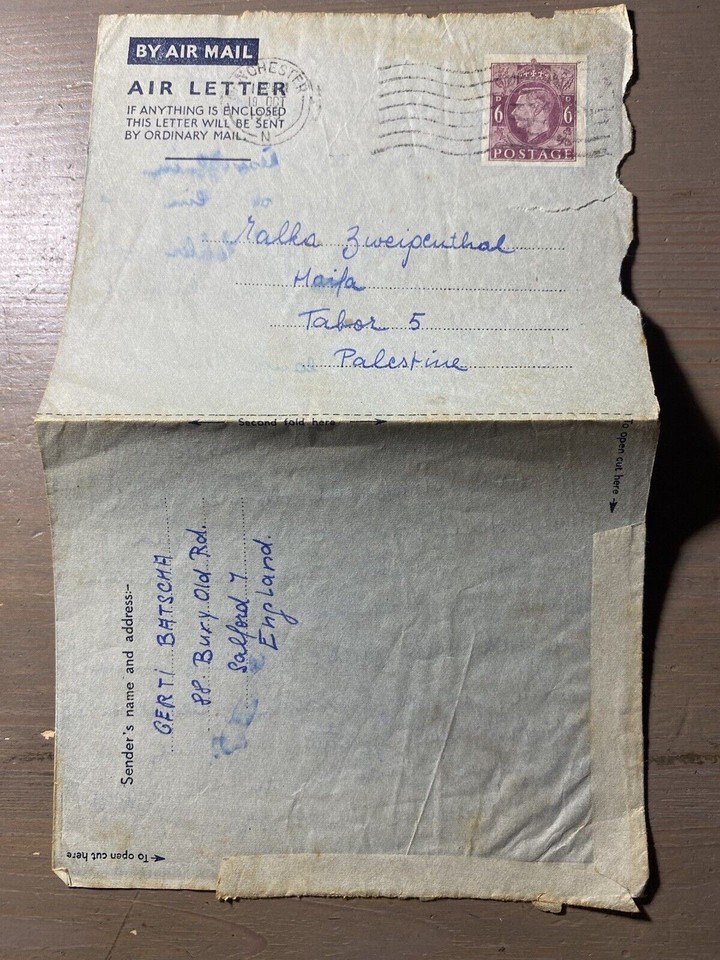 BY AIR MAIL
AIR LETTER
IF ANYTHING IS ENCLOSED
THIS LETTER WILL BE SENT
BY ORDINARY MAIL.
NCHESTER
19 OCT
N
D D
6 6
POSTAGE
Malka Zweigenthal
Haifa
Tabor 5
Palestine
Second fold here
To open cut here
Sender's name and address:-
GERTI BATSCHA
88 Bury Old Rd.
Salford 7
England.
To open cut here